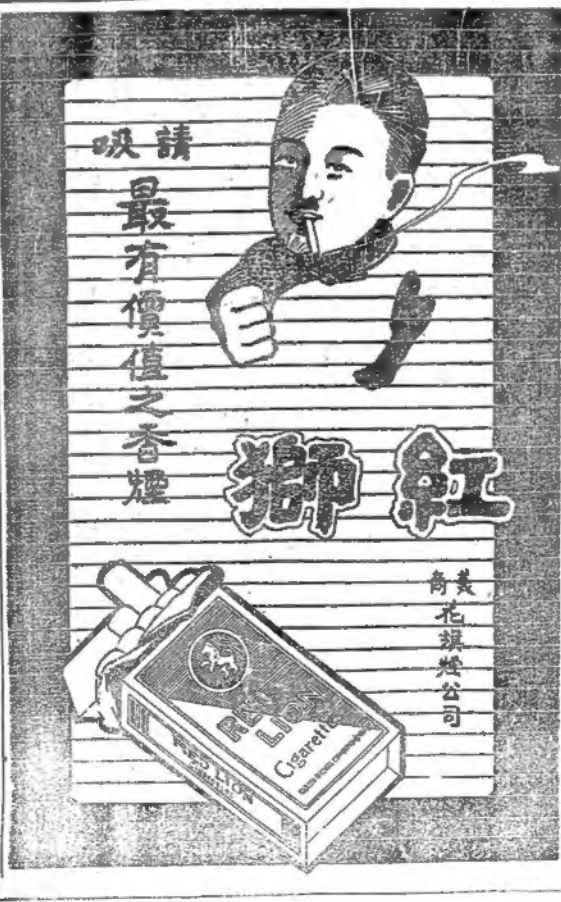 請吸
最有價值之香煙
紅獅
美商
花旗烟公司
RED
LION
Cigarette
RED LION